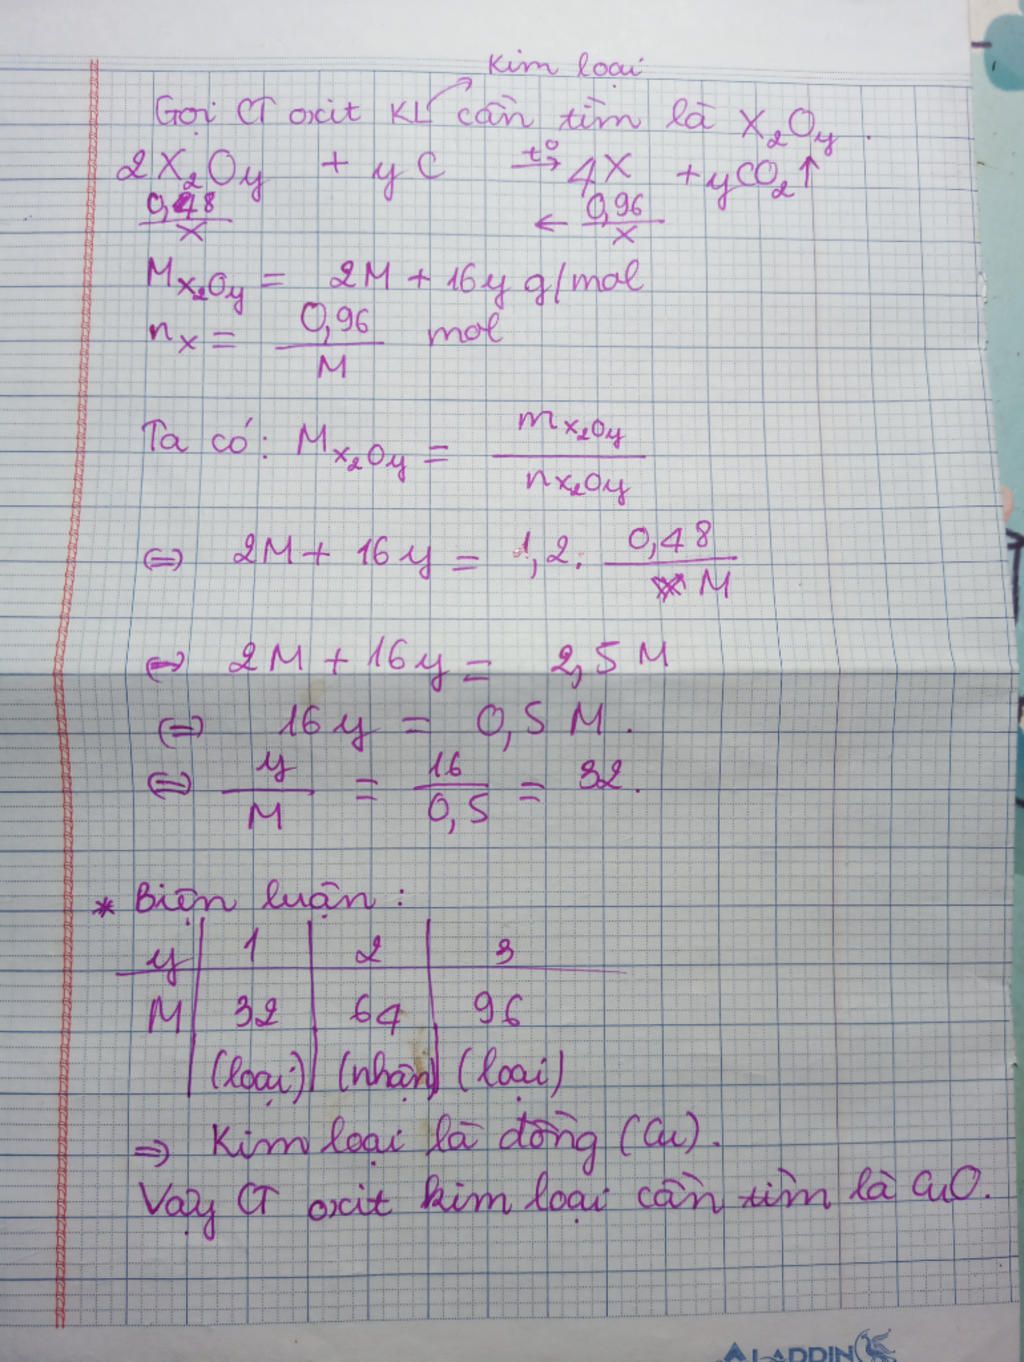 Kim loại
Gọi CT oxit KL cần tìm là X₂Oy.
2X₂Oy + yC t°→ 4X + yCO₂↑
0,48/X ← 0,96/X
M_X₂Oy = 2M + 16y g/mol
n_X = 0,96/M mol
Ta có: M_X₂Oy = m_X₂Oy/n_X₂Oy
⇔ 2M + 16y = 1,2 : 0,48/M
⇔ 2M + 16y = 2,5M
⇔ 16y = 0,5M.
⇔ y/M = 16/0,5 = 32.
* Biện luận:
y | 1 | 2 | 3
M | 32 | 64 | 96
(loại) | (nhận) | (loại)
⇒ Kim loại là đồng (Cu).
Vậy CT oxit kim loại cần tìm là CuO.
ALADDIN